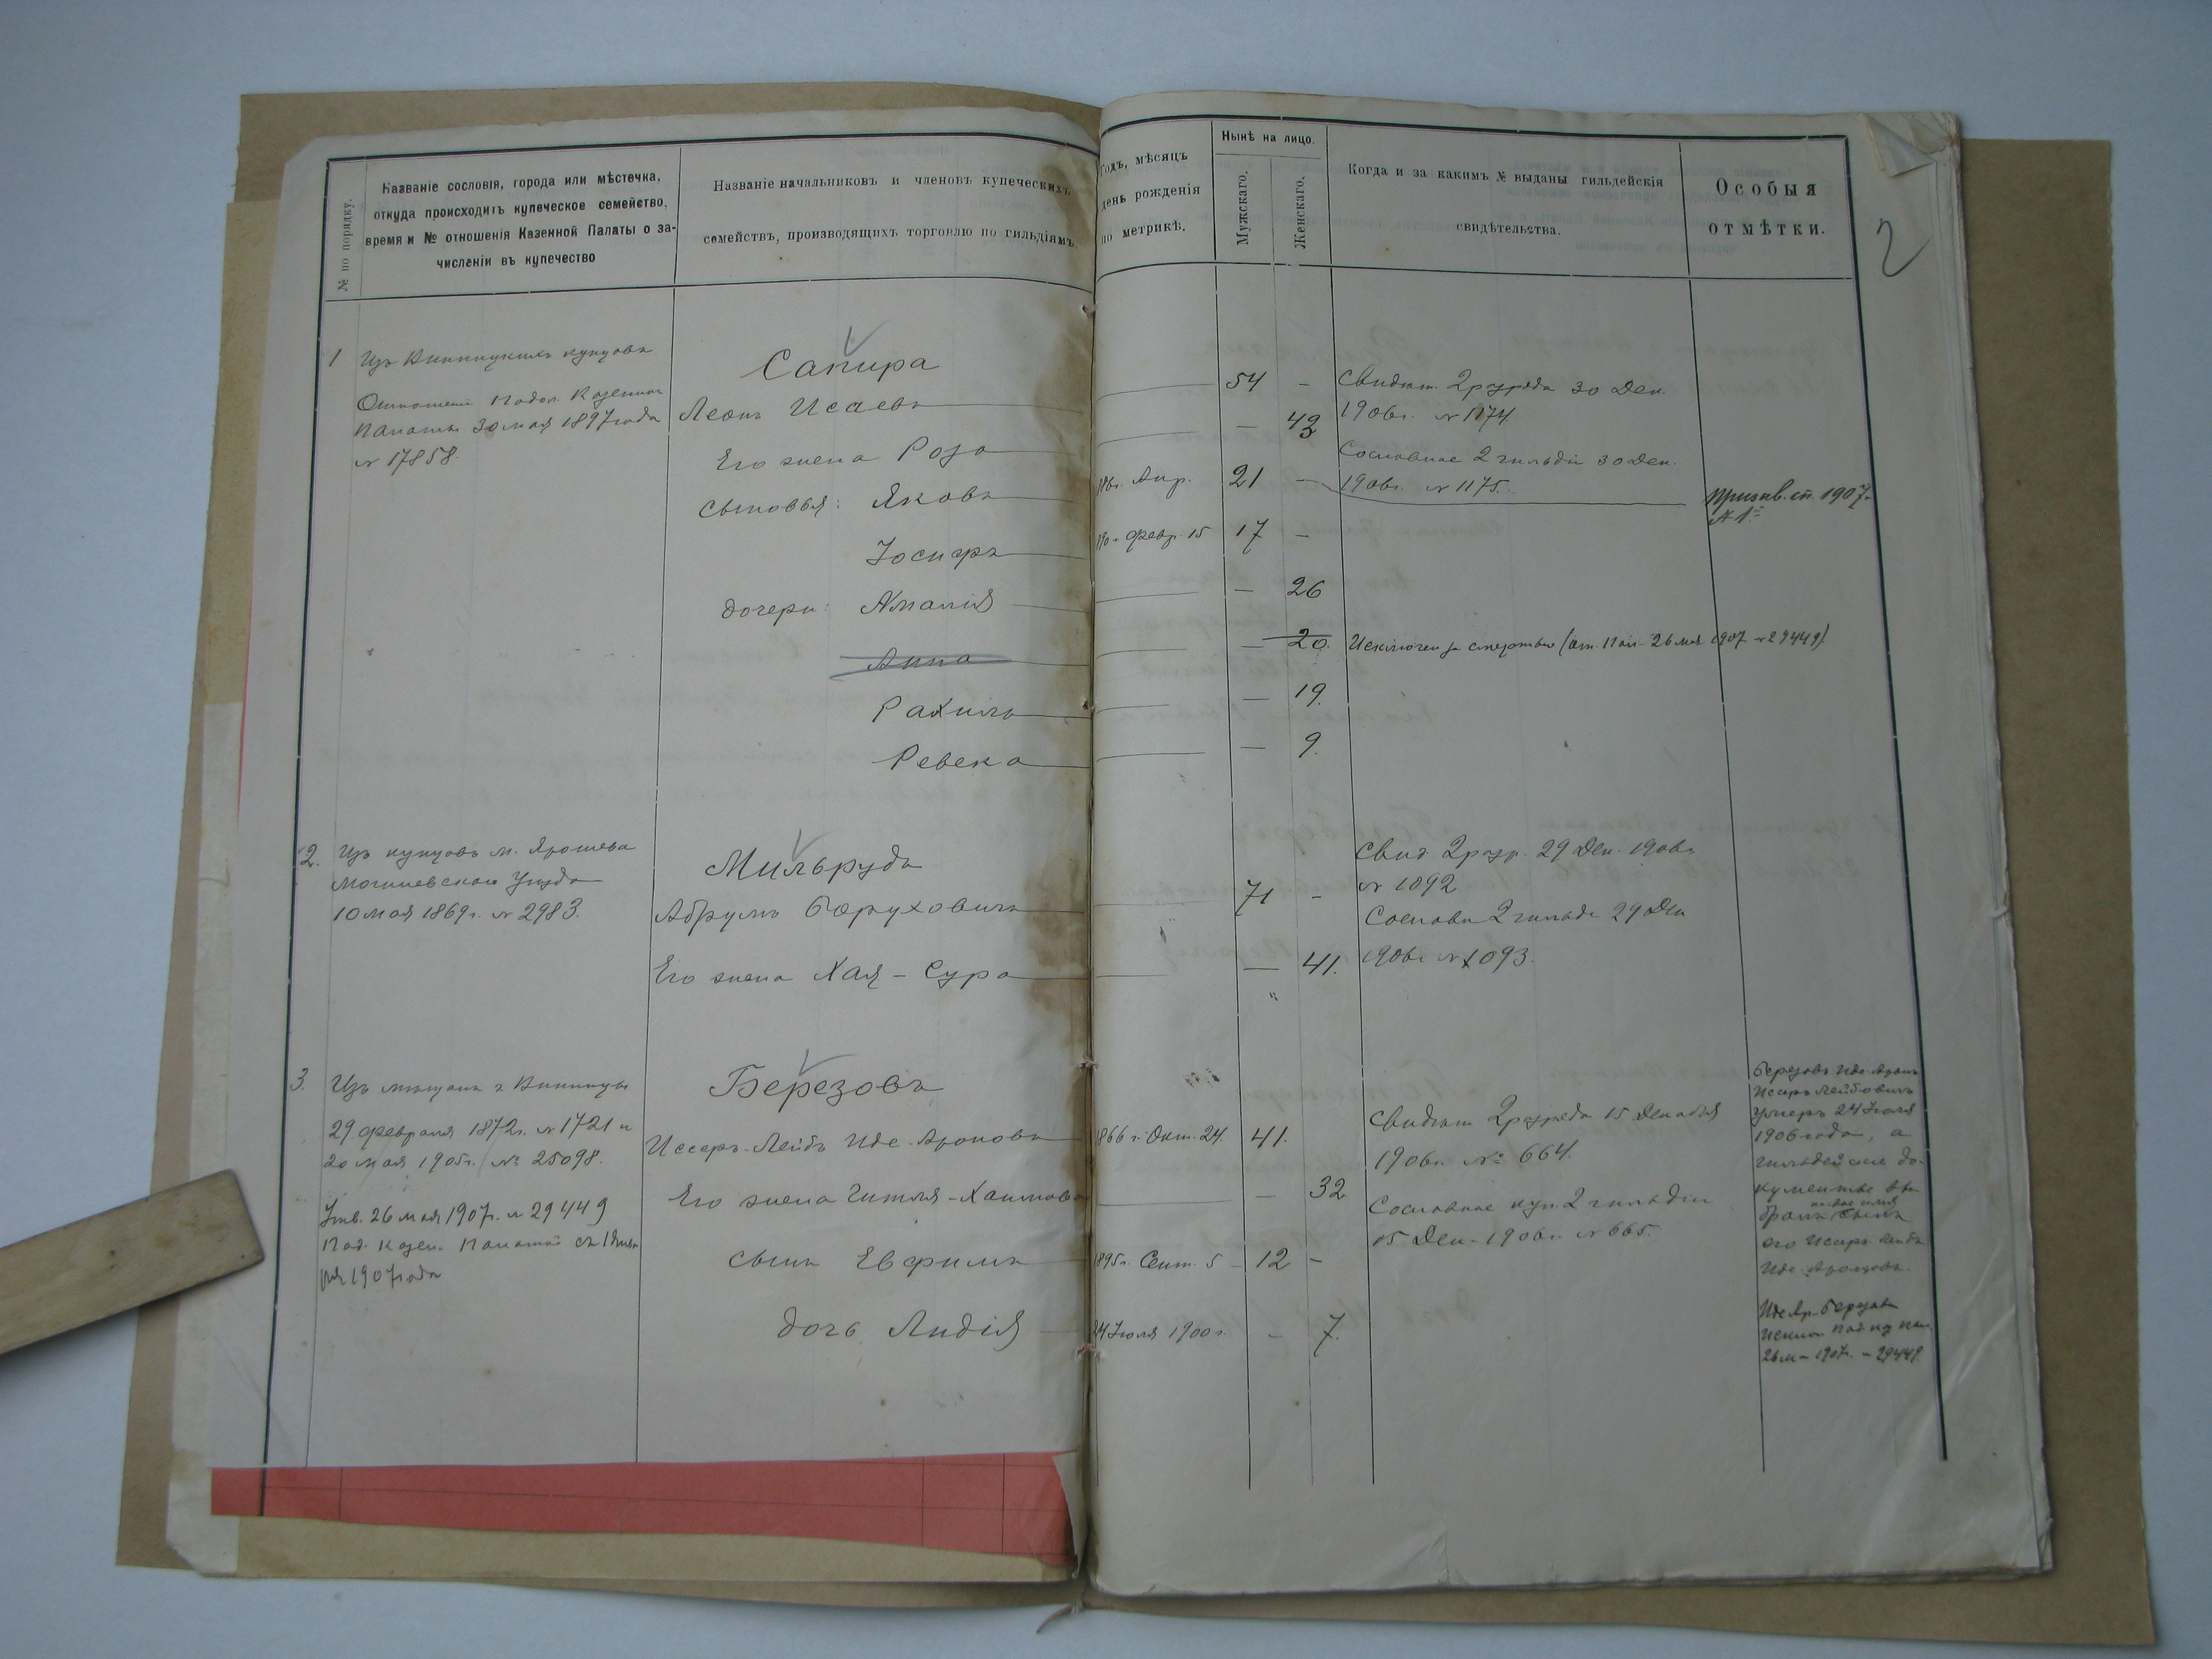 № по порядку.
Названіе сословія, города или мѣстечка,
откуда происходитъ купеческое семейство,
время и № отношенія Казенной Палаты о за-
численіи въ купечество
Названіе начальниковъ и членовъ купеческихъ
семействъ, производящихъ торговлю по гильдіямъ.
Годъ, мѣсяцъ
день рожденія
по метрикѣ.
Нынѣ на лицо.
Мужскаго.
Женскаго.
Когда и за какимъ № выданы гильдейскія
свидѣтельства.
Особыя
отмѣтки.
2
1
Изъ Винницкихъ купцовъ
Отношеніе Подол. Казенной
Палаты 30 мая 1897 года
№ 17858.
Сапира
Леонъ Исаевъ
54 —
Его жена Роза
— 43
Сыновья: Яковъ
Апр. 21 —
Іосифъ
Февр. 15 17 —
дочери: Амалія
— 26
Анна
— 20.
Рахиль
— 19.
Ревека
— 9.
Свидѣт. 2 разряда 30 Дек.
1906 г. № 1174.
Сословное 2 гильдіи 30 Дек.
1906 г. № 1175.
Призыв. сп. 1907 г.
Исключен за смертью (от. Пал. 26 мая 1907 № 29449).
2.
Изъ купцовъ м. Ярошева
Могилевскаго Уѣзда
10 мая 1869 г. № 2983.
Мильрудъ
Абрумъ Боруховичъ
71 —
Его жена Хая-Сура
— 41.
Свид. 2 разр. 29 Дек. 1906 г.
№ 1092
Сословн 2 гильд. 29 Дек
1906 г. № 1093.
3.
Изъ мѣщанъ г. Винницы
29 февраля 1872 г. № 1721 и
20 мая 1905 г. № 25098.
Утв. 26 мая 1907 г. № 29449
Под. Казен. Палатой съ 1 Янва
ря 1907 года
Березовъ
Иссеръ-Лейбъ Иде-Ароновъ
1866 г. Окт. 24. 41.
Его жена Гитля-Хаимовна
— 32
сынъ Евфимъ
1895 г. Сент. 5 12 —
дочь Лидія
24 Іюля 1900 г. — 7.
Свидѣт. 2 разряда 15 Декабря
1906 г. № 664.
Сословное куп. 2 гильдіи
15 Дек. 1906 г. № 665.
Березовъ Иде-Аронъ
Исеръ Лейбовичъ
умеръ 24 Іюля
1906 года, а
гильдейскіе до-
кументы вы-
бралъ сынъ
его Исеръ-Лейбъ
Иде-Ароновъ.
Иде Ар. Березовъ
исключ Под. каз пал.
26 м. 1907 г. № 29449.